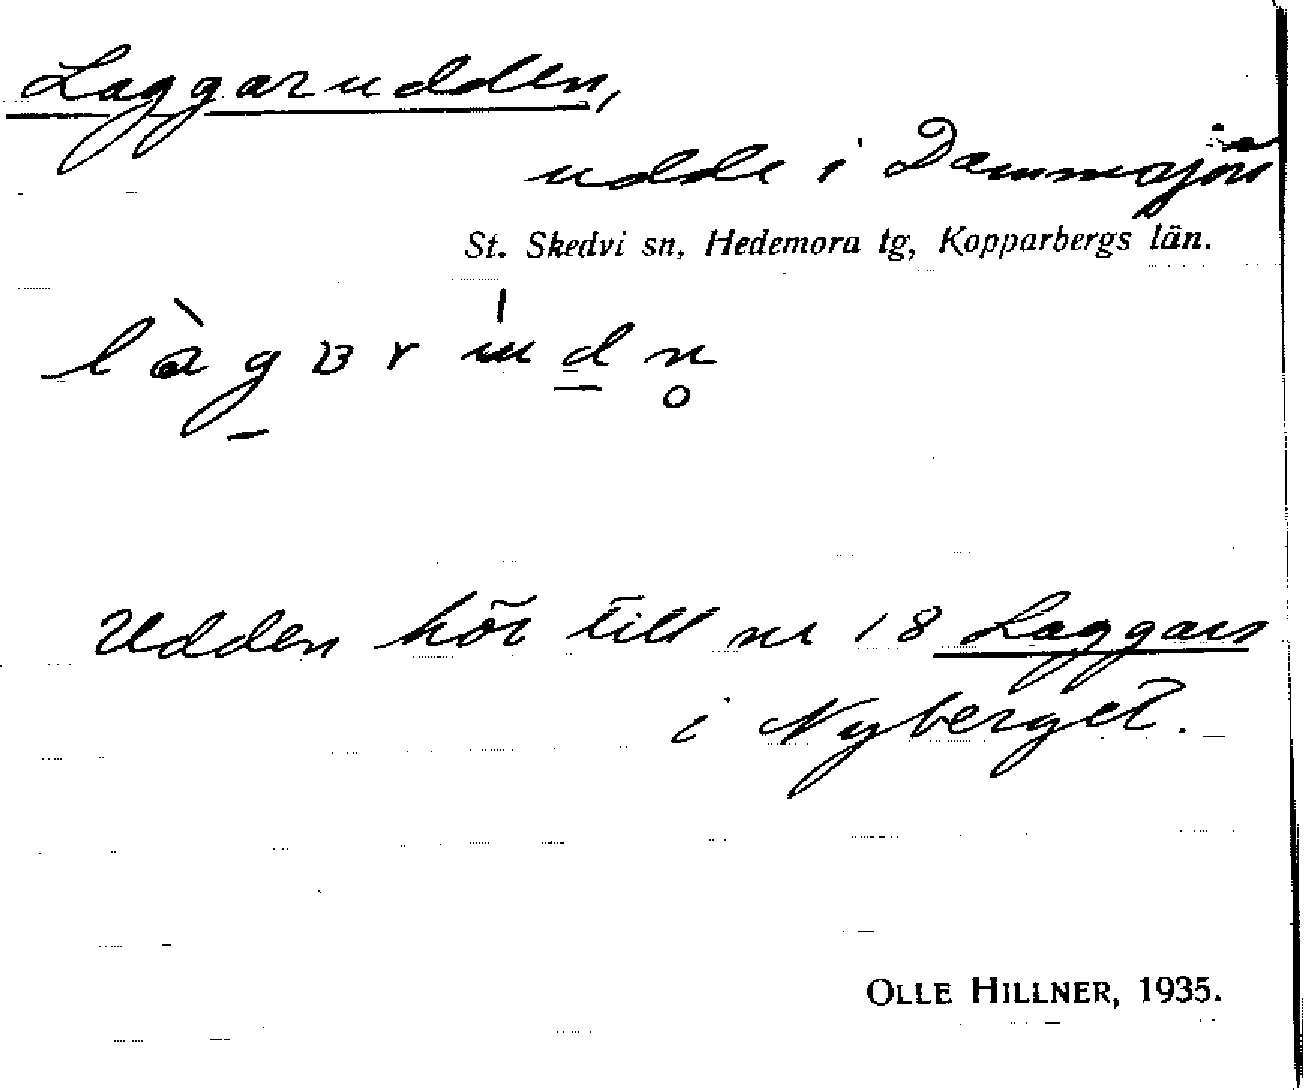 Laggarudden,
udde i Dammsjön
St. Skedvi sn, Hedemora tg, Kopparbergs län.
Udden hör till nr 18 Laggars
i Nyberget.
OLLE HILLNER, 1935.